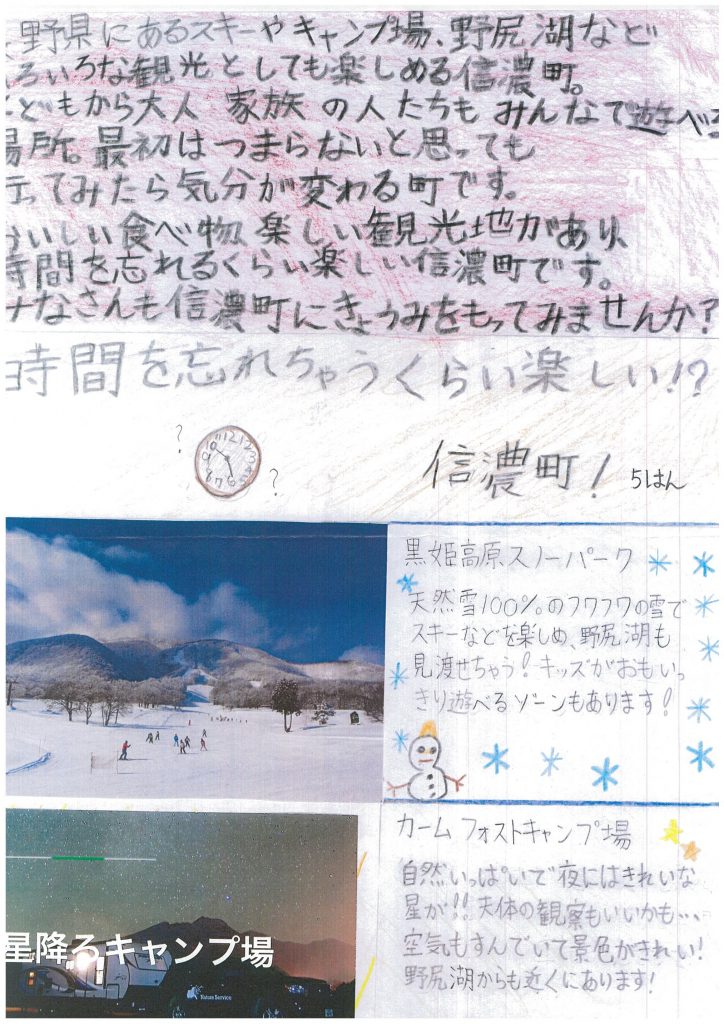 野県にあるスキーやキャンプ場、野尻湖など
ろいろな観光としても楽しめる信濃町。
どもから大人 家族 の人たちも みんなで遊べる
場所。最初はつまらないと思っても
行ってみたら気分が変わる町です。
おいしい食べ物、楽しい観光地があり、
時間を忘れるくらい楽しい信濃町です。
みなさんも信濃町にきょうみをもってみませんか?
時間を忘れちゃうくらい楽しい!?
? 12 1 2 3 4 5 6 7 8 9 10 11 ?
信濃町! 5はん
黒姫高原スノーパーク
天然雪100%のフワフワの雪で
スキーなどを楽しめ、野尻湖も
見渡せちゃう!キッズがおもいっ
きり遊べるゾーンもあります!
カーム フォストキャンプ場
自然いっぱいで夜にはきれいな
星が!!天体の観察もいいかも…
空気もすんでいて景色がきれい!
野尻湖からも近くにあります!
星降るキャンプ場
Nature Service